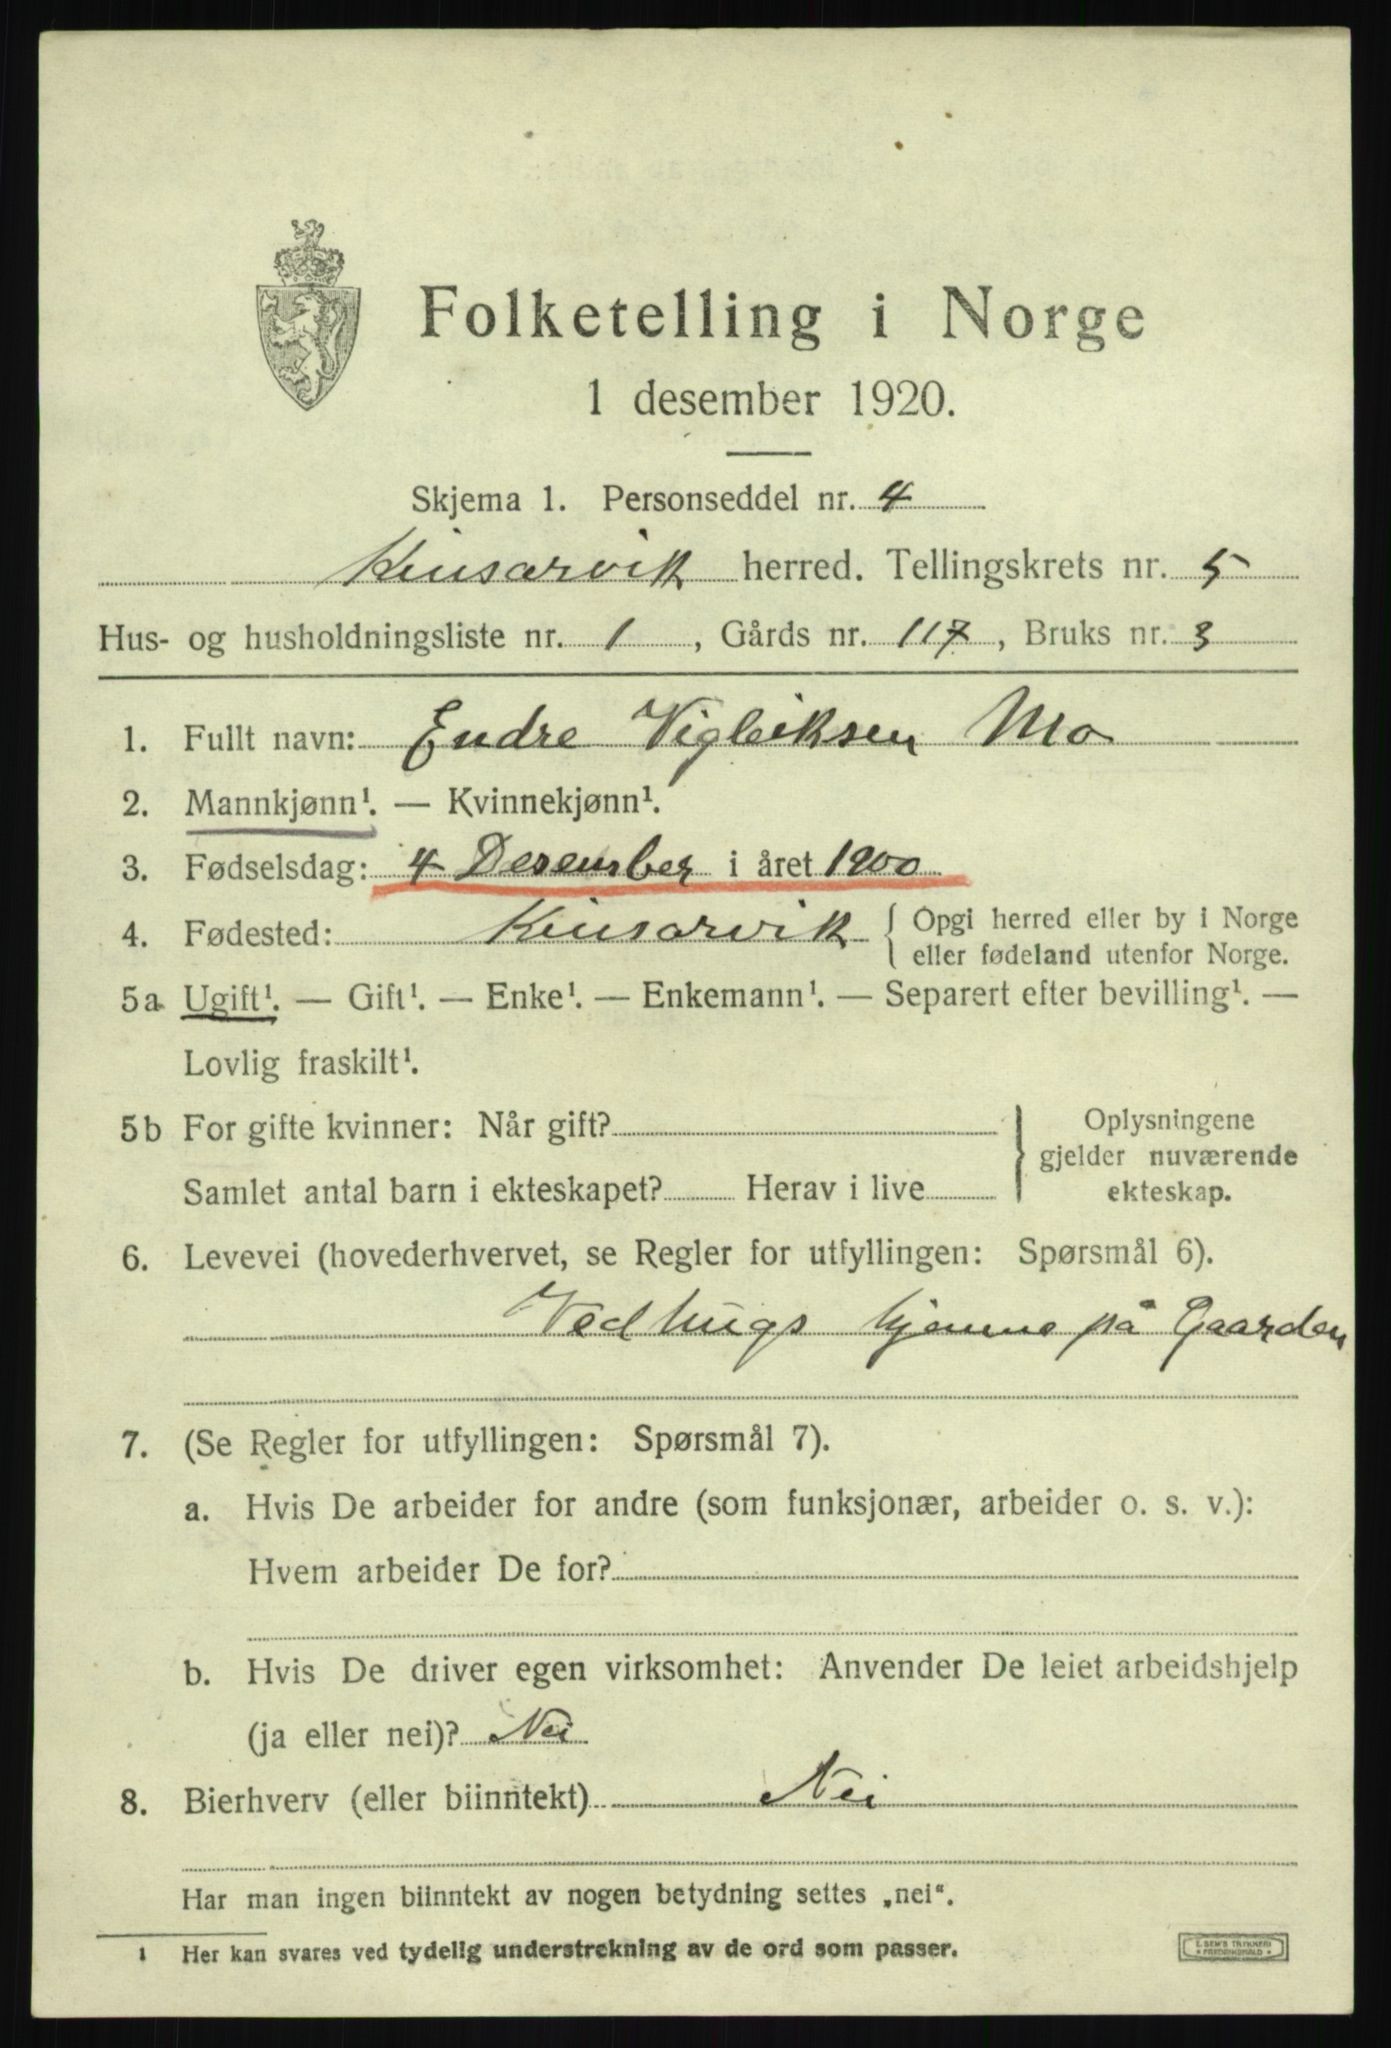 Folketelling i Norge
1 desember 1920.
Skjema 1. Personseddel nr. 4
Kinsarvik herred. Tellingskrets nr. 5
Hus- og husholdningsliste nr. 1, Gårds nr. 117, Bruks nr. 3
1. Fullt navn: Endre Vigleiksen Mo
2. Mannkjønn¹. — Kvinnekjønn¹.
3. Fødselsdag: 4 Desember i året 1900
4. Fødested: Kinsarvik { Opgi herred eller by i Norge
eller fødeland utenfor Norge.
5a Ugift¹. — Gift¹. — Enke¹. — Enkemann¹. — Separert efter bevilling¹. —
Lovlig fraskilt¹.
5b For gifte kvinner: Når gift?
Samlet antal barn i ekteskapet? Herav i live
} Oplysningene
gjelder nuværende
ekteskap.
6. Levevei (hovederhvervet, se Regler for utfyllingen: Spørsmål 6).
Vedhugs hjemme på Gaarden
7. (Se Regler for utfyllingen: Spørsmål 7).
a. Hvis De arbeider for andre (som funksjonær, arbeider o. s. v.):
Hvem arbeider De for?
b. Hvis De driver egen virksomhet: Anvender De leiet arbeidshjelp
(ja eller nei)? Nei
8. Bierhverv (eller biinntekt) Nei
Har man ingen biinntekt av nogen betydning settes „nei“.
1 Her kan svares ved tydelig understrekning av de ord som passer.
E. SEM'S TRYKKERI
FREDRIKSHALD